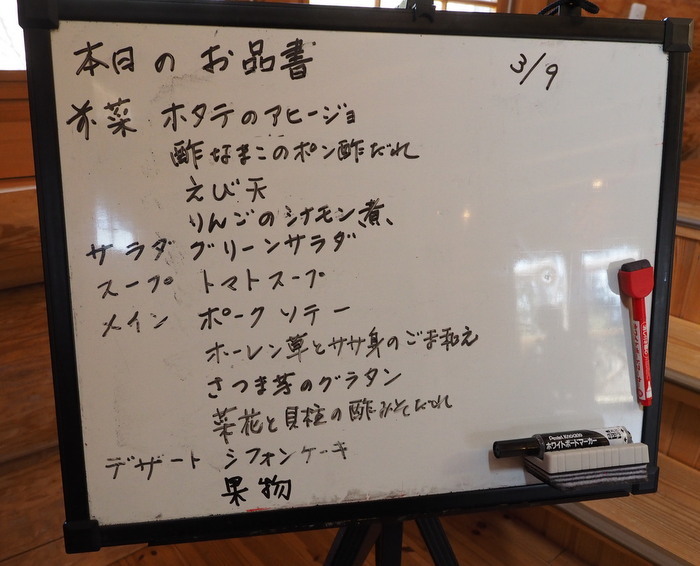 本日の お品書
3/9
前菜 ホタテのアヒージョ
酢なまこのポン酢だれ
えび天
りんごのシナモン煮、
サラダ グリーンサラダ
スープ トマトスープ
メイン ポークソテー
ホーレン草とササ身のごま和え
さつま芋のグラタン
菜花と貝柱の酢みそだれ
デザート シフォンケーキ
果物
Pentel Knockle
ホワイトボードマーカー